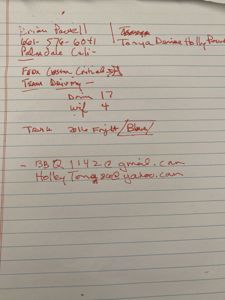 Brian Powell
661-576-6041
Palmdale Cali-
Tanya Denise Holly Powell
FedEx Custom Critical
Team Driving -
Driv 17
Wif 4
Truck 2016 Freight / Blue /
- BBQ11420gmail.com
@yahoo.com